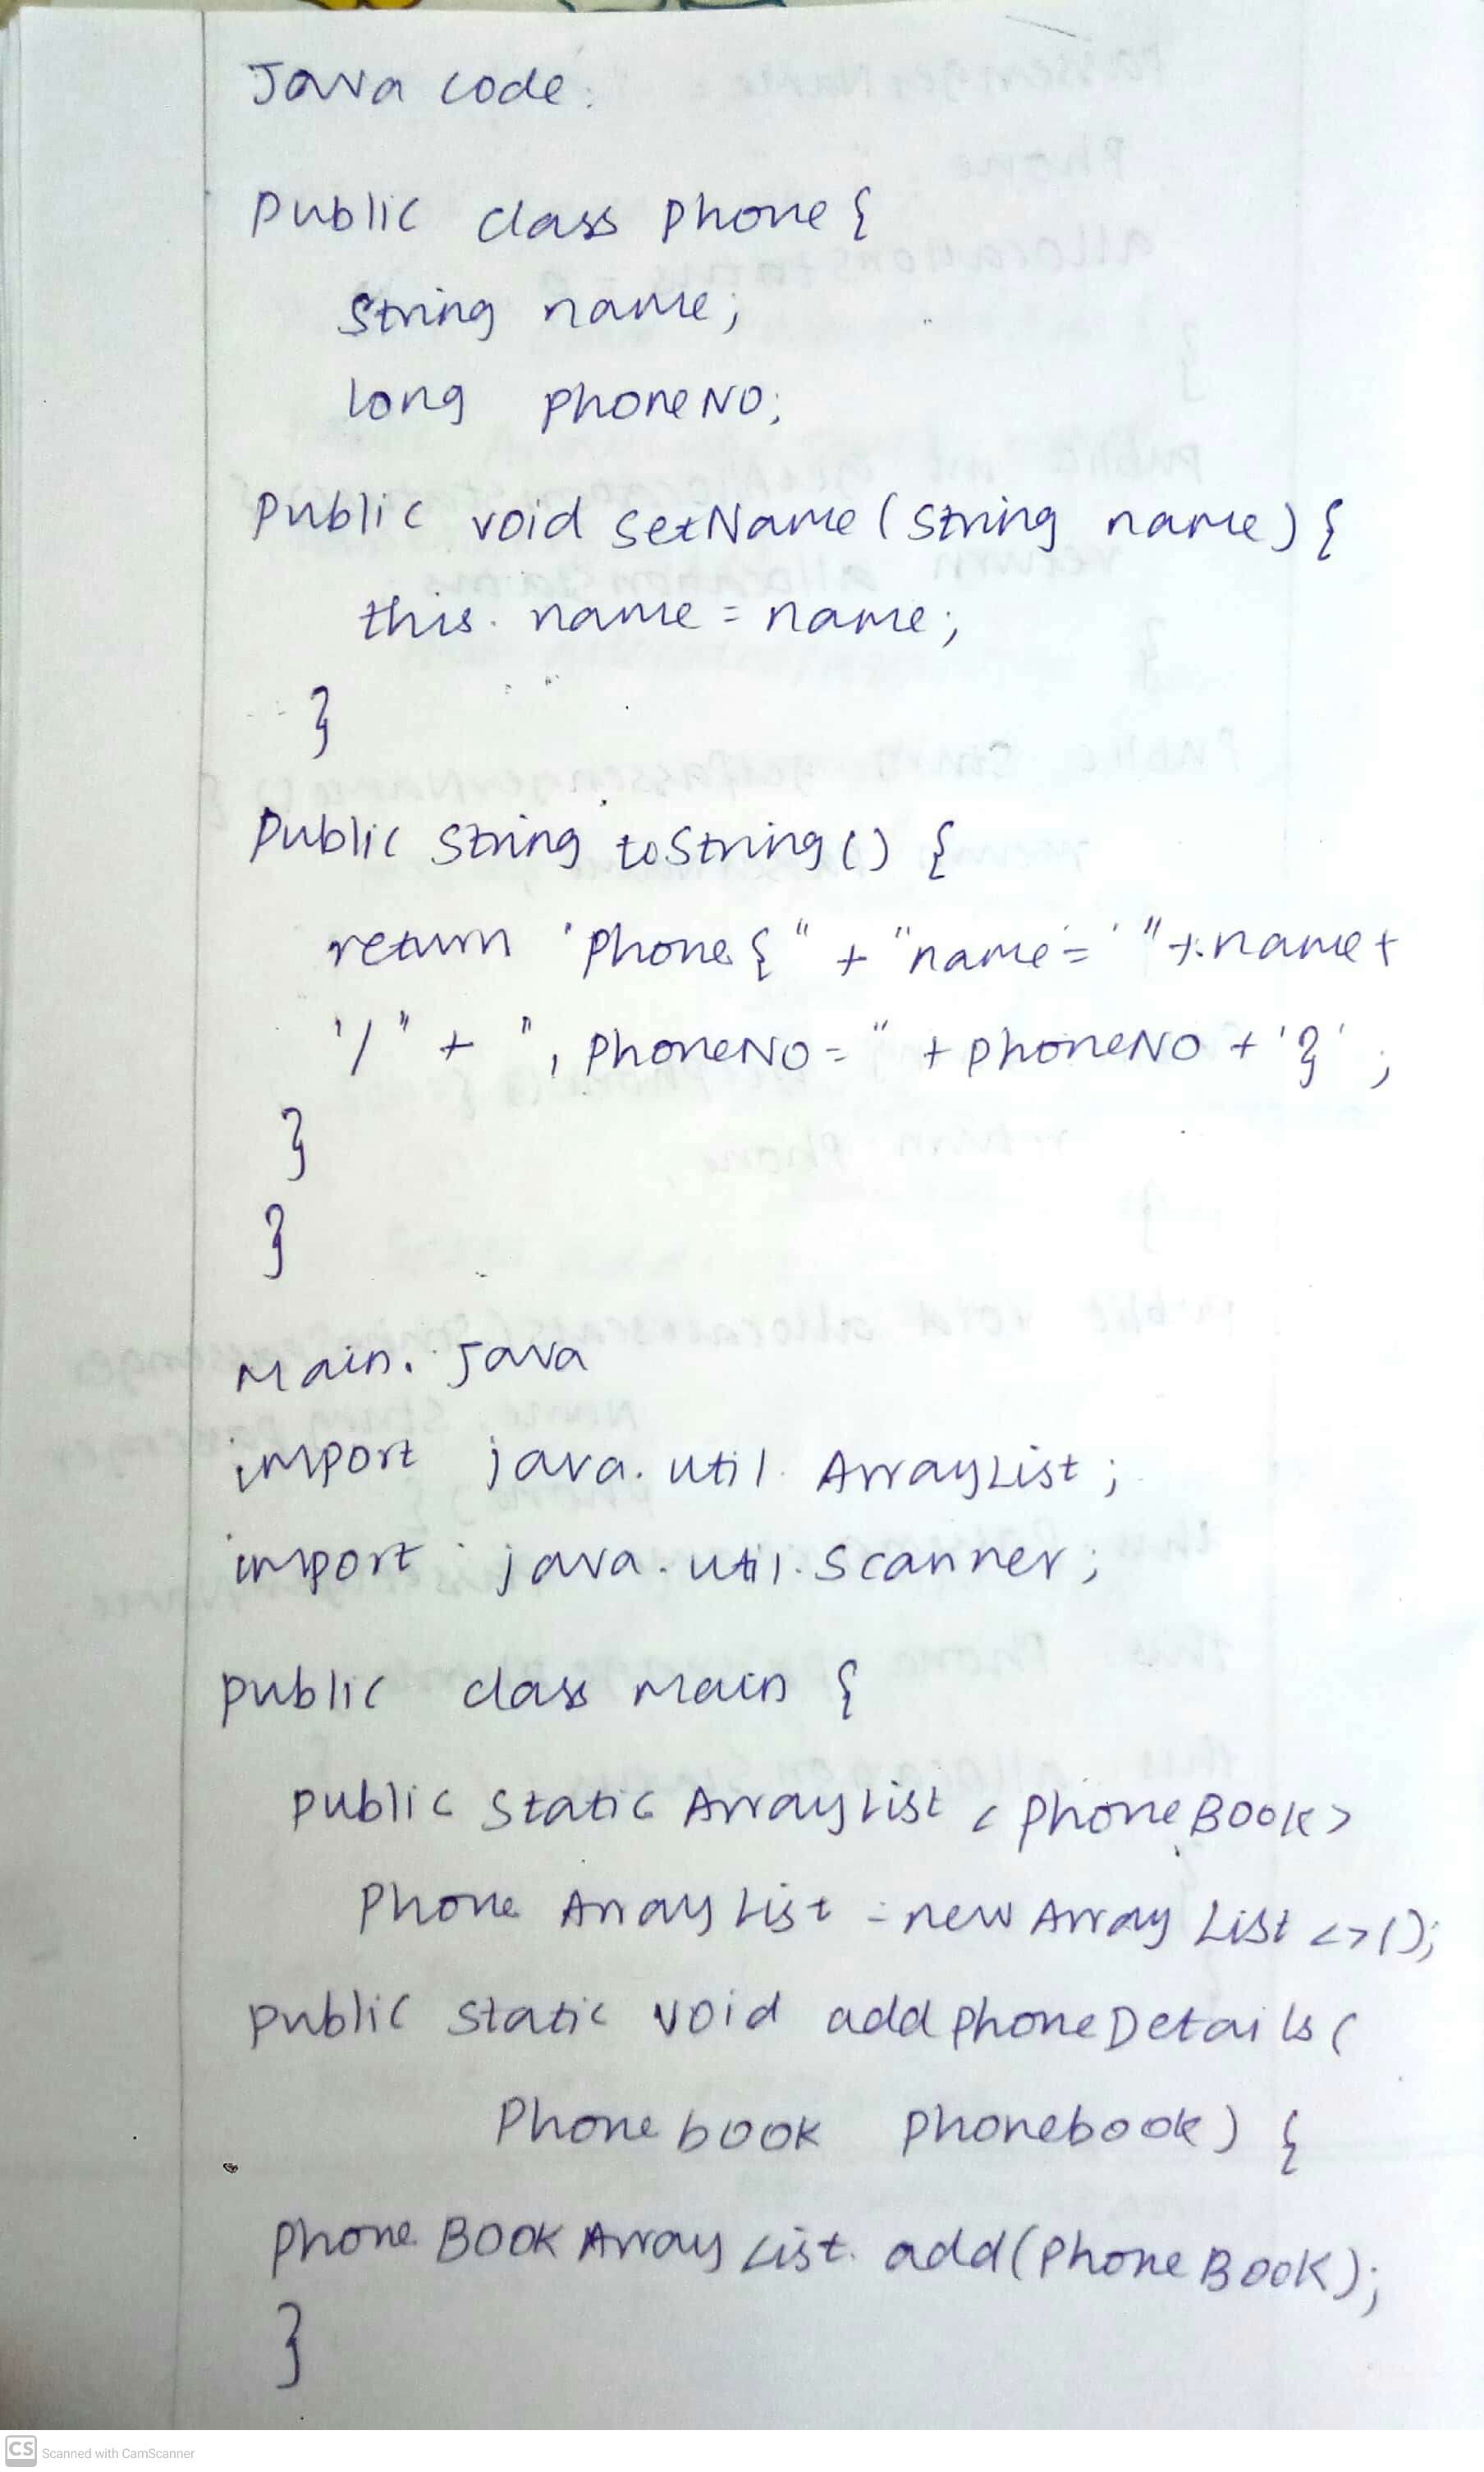 Java code:
public class phone {
String name;
long phoneNO;
public void setName (String name) {
this. name = name;
}
Public String toString () {
return 'phone {" + "name = ' " + name +
'/" + ", phoneNO = " + phoneNO + '}' ;
}
}
Main. Java
import java. util. ArrayList ;
import java. util. Scanner ;
public class Main {
public static ArrayList < phoneBook >
Phone Array List = new Array List <>();
public static void add phone Details (
Phone book phonebook) {
phone Book Array List. add (Phone Book);
}
CS Scanned with CamScanner